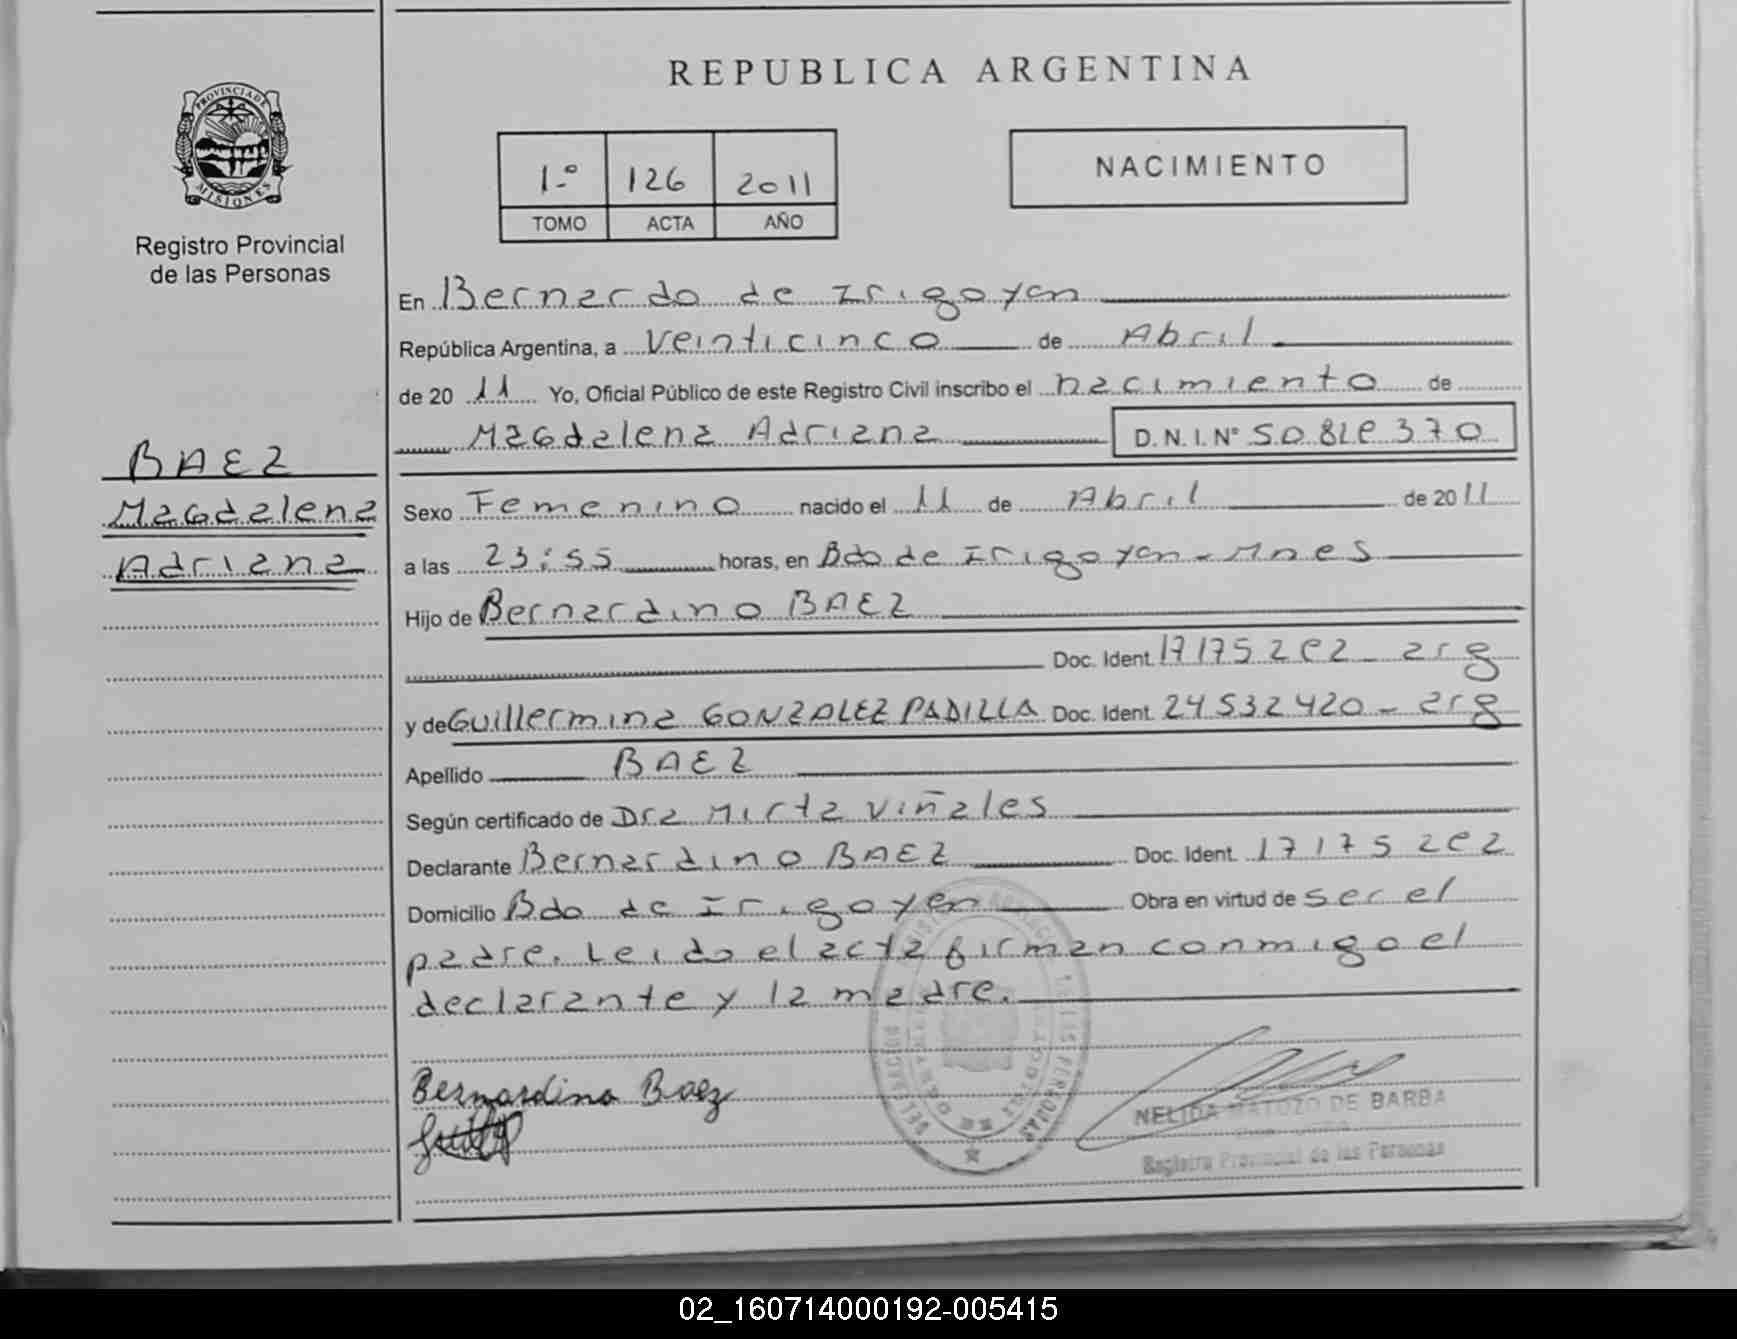 REPUBLICA ARGENTINA
PROVINCIA DE
MISIONES
Registro Provincial
de las Personas
1º 126 2011
TOMO ACTA AÑO
NACIMIENTO
En Bernardo de Irigoyen
República Argentina, a veinticinco de Abril
de 20 11 Yo, Oficial Público de este Registro Civil inscribo el nacimiento de
Magdalena Adriana D.N.I. Nº
BAEZ
Magdalena
Adriana
Sexo Femenino nacido el 11 de Abril de 2011
a las 23:55 horas, en Bdo de Irigoyen - Mnes
Hijo de Bernardino BAEZ
Doc. Ident. arg
y de Guillermina GONZALEZ PADILLA Doc. Ident. 24532420 - arg
Apellido BAEZ
Según certificado de Dra Mirta Viñales
Declarante Bernardino BAEZ Doc. Ident.
Domicilio Bdo de Irigoyen Obra en virtud de ser el
padre. Leido el acta firman conmigo el
declarante y la madre.
Bernardino Baez
NELIDA MATOZO DE BARBA
Registro Provincial de las Personas
02_160714000192-005415